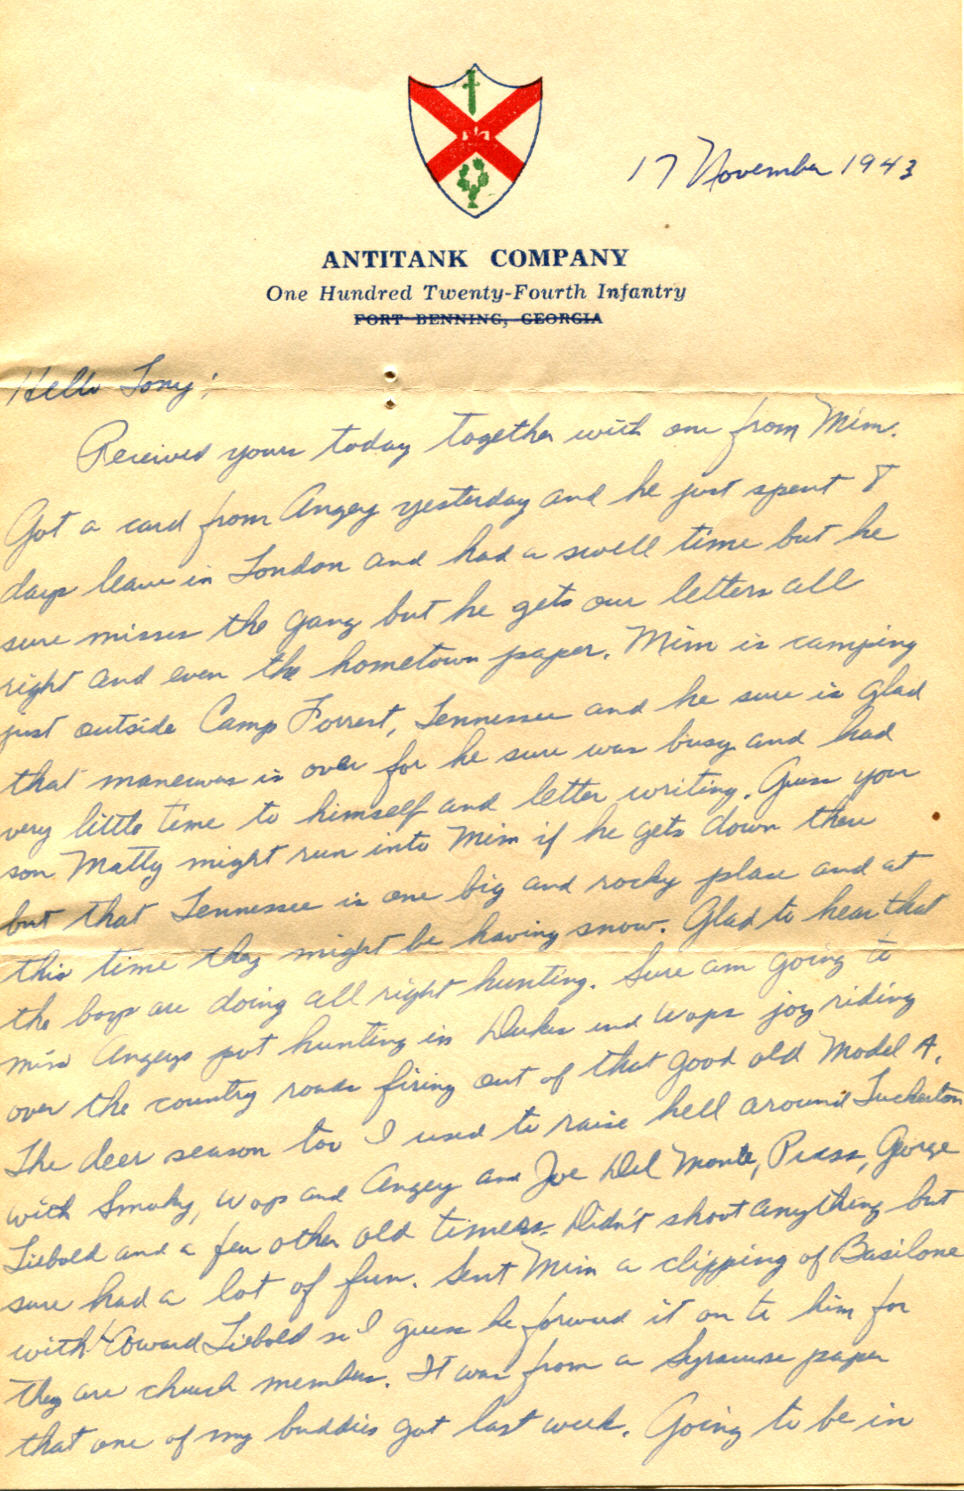 17 November 1943
ANTITANK COMPANY
One Hundred Twenty-Fourth Infantry
FORT BENNING, GEORGIA
Hello Tony;
Received yours today together with one from Mim.
Got a card from Angey yesterday and he just spent 8
days leave in London and had a swell time but he
sure misses the gang but he gets our letters all
right and even the hometown paper. Mim is camping
just outside Camp Forrest, Tennessee and he sure is glad
that maneuvers is over for he sure was busy and had
very little time to himself and letter writing. Guess your
son Matty might run into Mim if he gets down there
but that Tennessee is one big and rocky place and at
this time they might be having snow. Glad to hear that
the boys are doing all right hunting. Sure am going to
miss Angeys pot hunting in Dukes and Wops joy riding
over the country roads firing out of that good old Model A.
The deer season too I used to raise hell around Tuckerton
with Smoky, Wop and Angey and Joe Del Monte, George
Liebold and a few other old timers. Didn't shoot anything but
sure had a lot of fun. Sent Mim a clipping of Basilone
with Edward Liebold so I guess he forward it on to him for
they are church members. It was from a Syracuse paper
that one of my buddies got last week. Going to be in